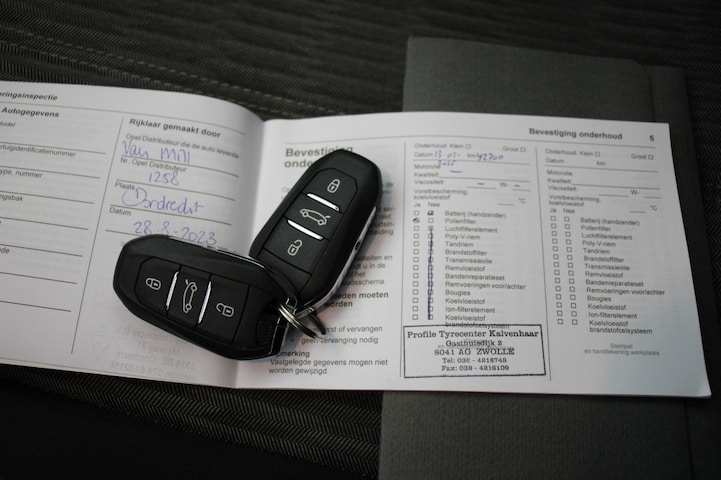 eringsinspectie
Autogegevens
Model
ertuigidentificatienummer
ype. nummer
ngsbak
Rijklaar gemaakt door
Opel Distributeur die de auto leverde
Van Mill
Nr. Opel Distributeur
1258
Plaats
Dordrecht
Datum
28-8-2023
Bevestiging
onde
eden moeten
rst of vervangen
vervanging nodig
merking
Vastgelegde gegevens mogen niet
worden gewijzigd.
Bevestiging onderhoud 5
Onderhoud: Klein Groot
Datum 13-03- km: 42700
Motorolie
Kwaliteit:
Viscositeit: W-
Vorstbescherming,
koelvloeistof: °C
Ja Nee
Batterij (handzender)
Pollenfilter
Luchtfilterelement
Poly-V-riem
Tandriem
Brandstoffilter
Transmissieolie
Remvloeistof
Bandenreparatieset
Remvoeringen voor/achter
Bougies
Koelvloeistof
Ion-filterelement
Koelvloeistof
brandstofcelsysteem
Profile Tyrecenter Kalvenhaar
Gasthuisdijk 2
8041 AG ZWOLLE
Tel: 038 - 4216748
Fax: 038 - 4216109
Onderhoud: Klein Groot
Datum: km:
Motorolie
Kwaliteit:
Viscositeit: W-
Vorstbescherming,
koelvloeistof: °C
Ja Nee
Batterij (handzender)
Pollenfilter
Luchtfilterelement
Poly-V-riem
Tandriem
Brandstoffilter
Transmissieolie
Remvloeistof
Bandenreparatieset
Remvoeringen voor/achter
Bougies
Koelvloeistof
Ion-filterelement
Koelvloeistof
brandstofcelsysteem
Stempel
en handtekening werkplaats